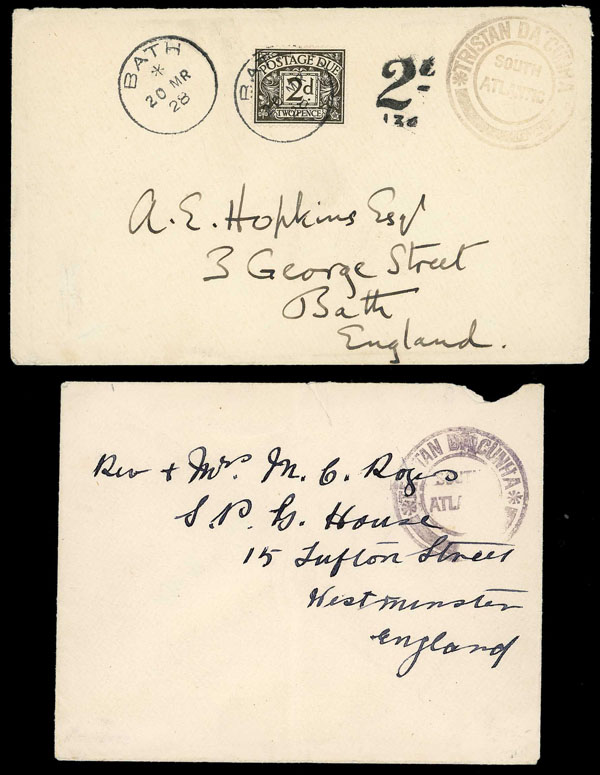 BATH
20 MR
28
POSTAGE DUE
2d
TWOPENCE
2d
136
TRISTAN DA CUNHA
SOUTH
ATLANTIC
A. E. Hopkins Esqr
3 George Street
Bath
England.
TAN DA CUNHA
SOUT
ATLA
Rev + Mrs M. C. Rogers
S. P. G. House
15 Tufton Street
Westminster
England